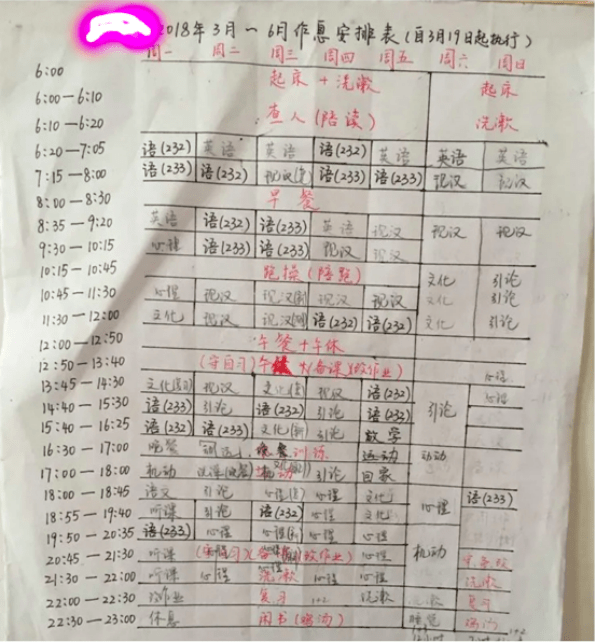 2018年3月~6月作息安排表(自3月19日起执行)
周一 周二 周三 周四 周五 周六 周日
6:00 起床+洗漱 起床
6:00—6:10
6:10—6:20 查人(陪读) 洗漱
6:20—7:05 语(232) 英语 英语 语(232) 英语 英语 英语
7:15—8:00 语(233) 语(232) 现汉 语(233) 语(233) 现汉 现汉
8:00—8:30 早餐
8:35—9:20 英语 语(232) 语(233) 英语 现汉 现汉 现汉
9:30—10:15 心理 语(233) 语(233) 现汉 现汉
10:15—10:45 跑操(陪跑) 文化 引论
10:45—11:30 心理 现汉 现汉 现汉 现汉 文化 引论
11:30—12:00 文化 现汉 现汉 语(233) 语(232) 文化 引论
12:00—12:50 午餐+午休
12:50—13:40 (守自习)午休(备课)(改作业) 心理
13:45—14:30 文化 现汉 文化 现汉 语(232) 心理
14:40—15:30 语(233) 引论 语(232) 引论 语(232) 引论
15:40—16:25 语(232) 语(233) 文化 引论 数学
16:30—17:00 晚餐 训练 运动 动动
17:00—18:00 机动 机动 引论 回家
18:00—18:45 语文 引论 心理 心理 文化 心理 语(233)
18:55—19:40 听课 引论 语(232) 心理 文化
19:50—20:35 语(233) 心理 心理 心理
20:45—21:30 听课 心理 机动
21:30—22:00 听课 心理 洗漱 心理 洗漱
22:00—22:30 改作业 复习 洗漱 洗漱 复习
22:30—23:00 休息 闲书(鸡汤) 睡觉 鸡汤